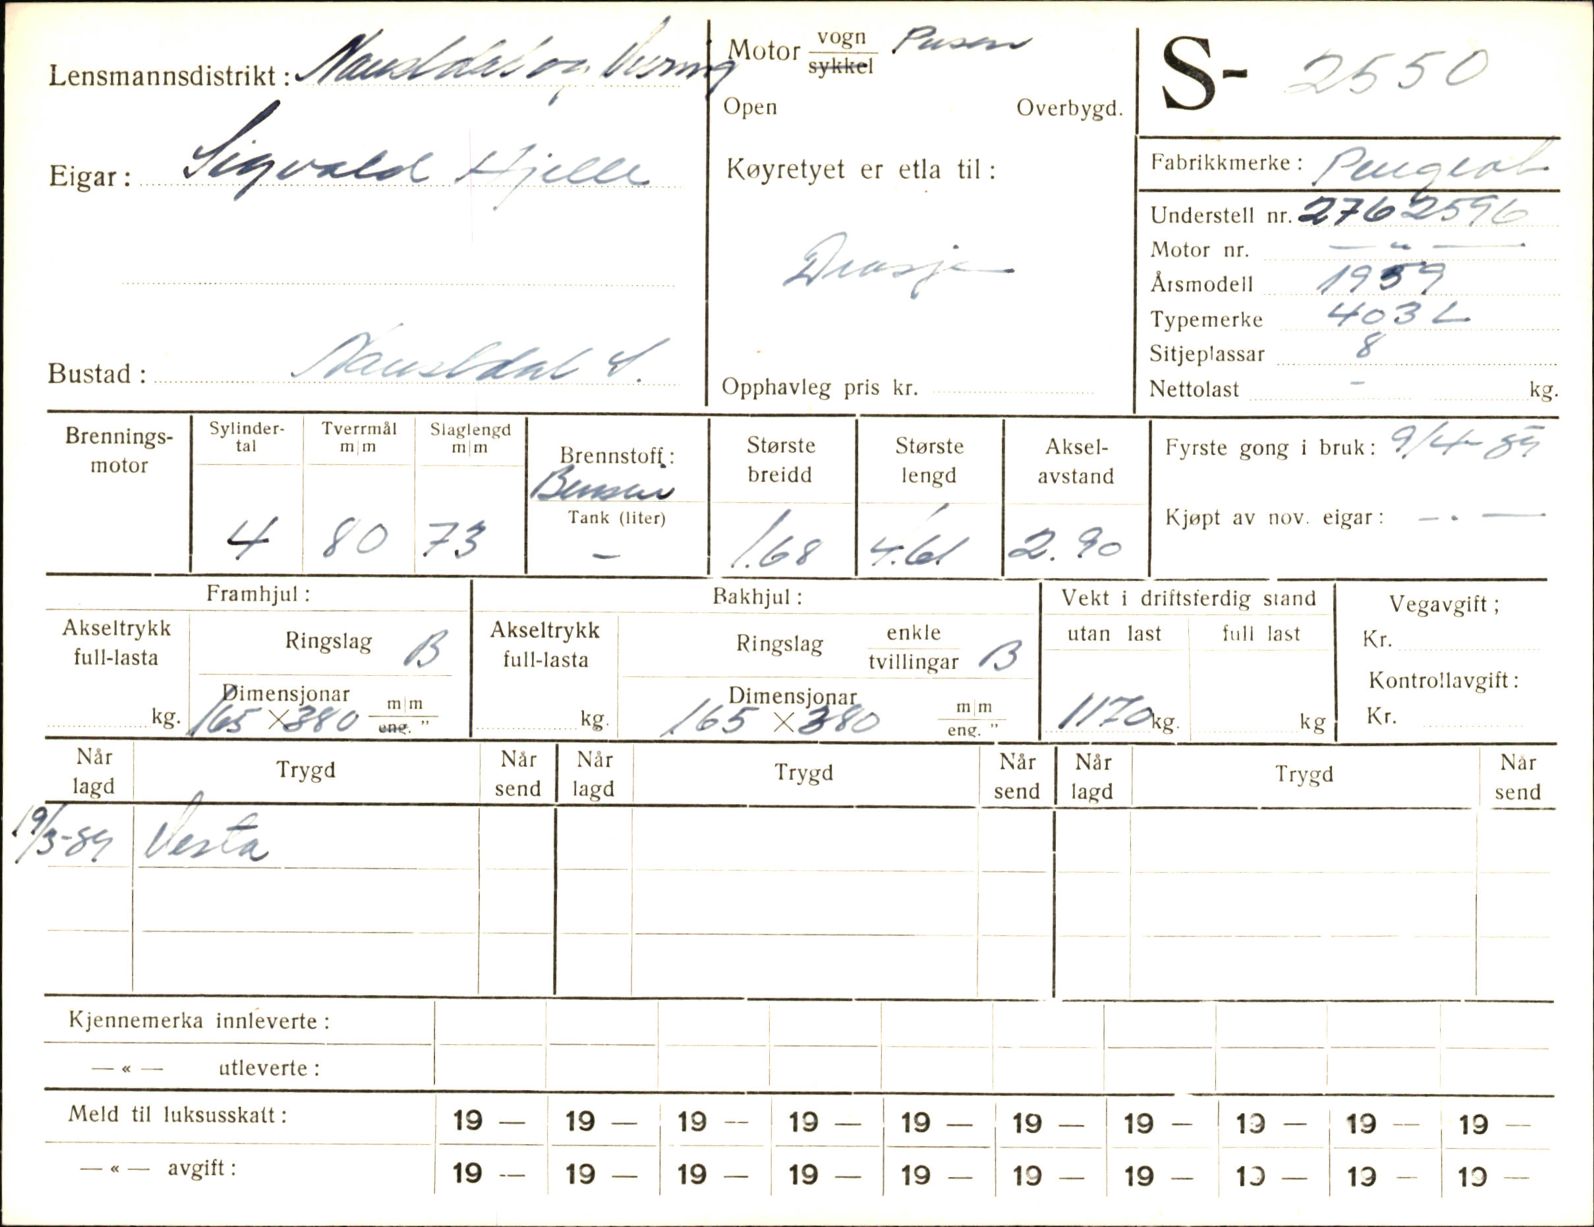 Lensmannsdistrikt: Naustdal og Vevring
Eigar: Sigvald Hjelle
Bustad: Naustdal S.
Motor vogn
sykkel
Open Overbygd.
Køyretyet er etla til:
Drosje
Opphavleg pris kr.
S- 2550
Fabrikkmerke: Peugeot
Understell nr. 2762596
Motor nr. — " —
Årsmodell 1959
Typemerke 403 L
Sitjeplassar 8
Nettolast - kg.
Brennings-
motor
Sylinder-
tal
4
Tverrmål
m|m
80
Slaglengd
m|m
73
Brennstoff:
Bensin
Tank (liter)
-
Største
breidd
1.68
Største
lengd
4.61
Aksel-
avstand
2.90
Fyrste gong i bruk: 9/4-59
Kjøpt av nov. eigar: — . —
Framhjul:
Akseltrykk
full-lasta
kg.
Ringslag B
Dimensjonar
165 × 380 m|m
eng. "
Bakhjul:
Akseltrykk
full-lasta
kg.
Ringslag enkle
tvillingar B
Dimensjonar
165 × 380 m|m
eng. "
Vekt i driftsferdig stand
utan last full last
1170 kg. kg
Vegavgift;
Kr.
Kontrollavgift:
Kr.
Når
lagd Trygd Når
send Når
lagd Trygd Når
send Når
lagd Trygd Når
send
19/3-59 Vesta
Kjennemerka innleverte:
— « — utleverte:
Meld til luksusskatt: 19 — 19 — 19 — 19 — 19 — 19 — 19 — 19 — 19 — 19 —
— « — avgift: 19 — 19 — 19 — 19 — 19 — 19 — 19 — 19 — 19 — 19 —